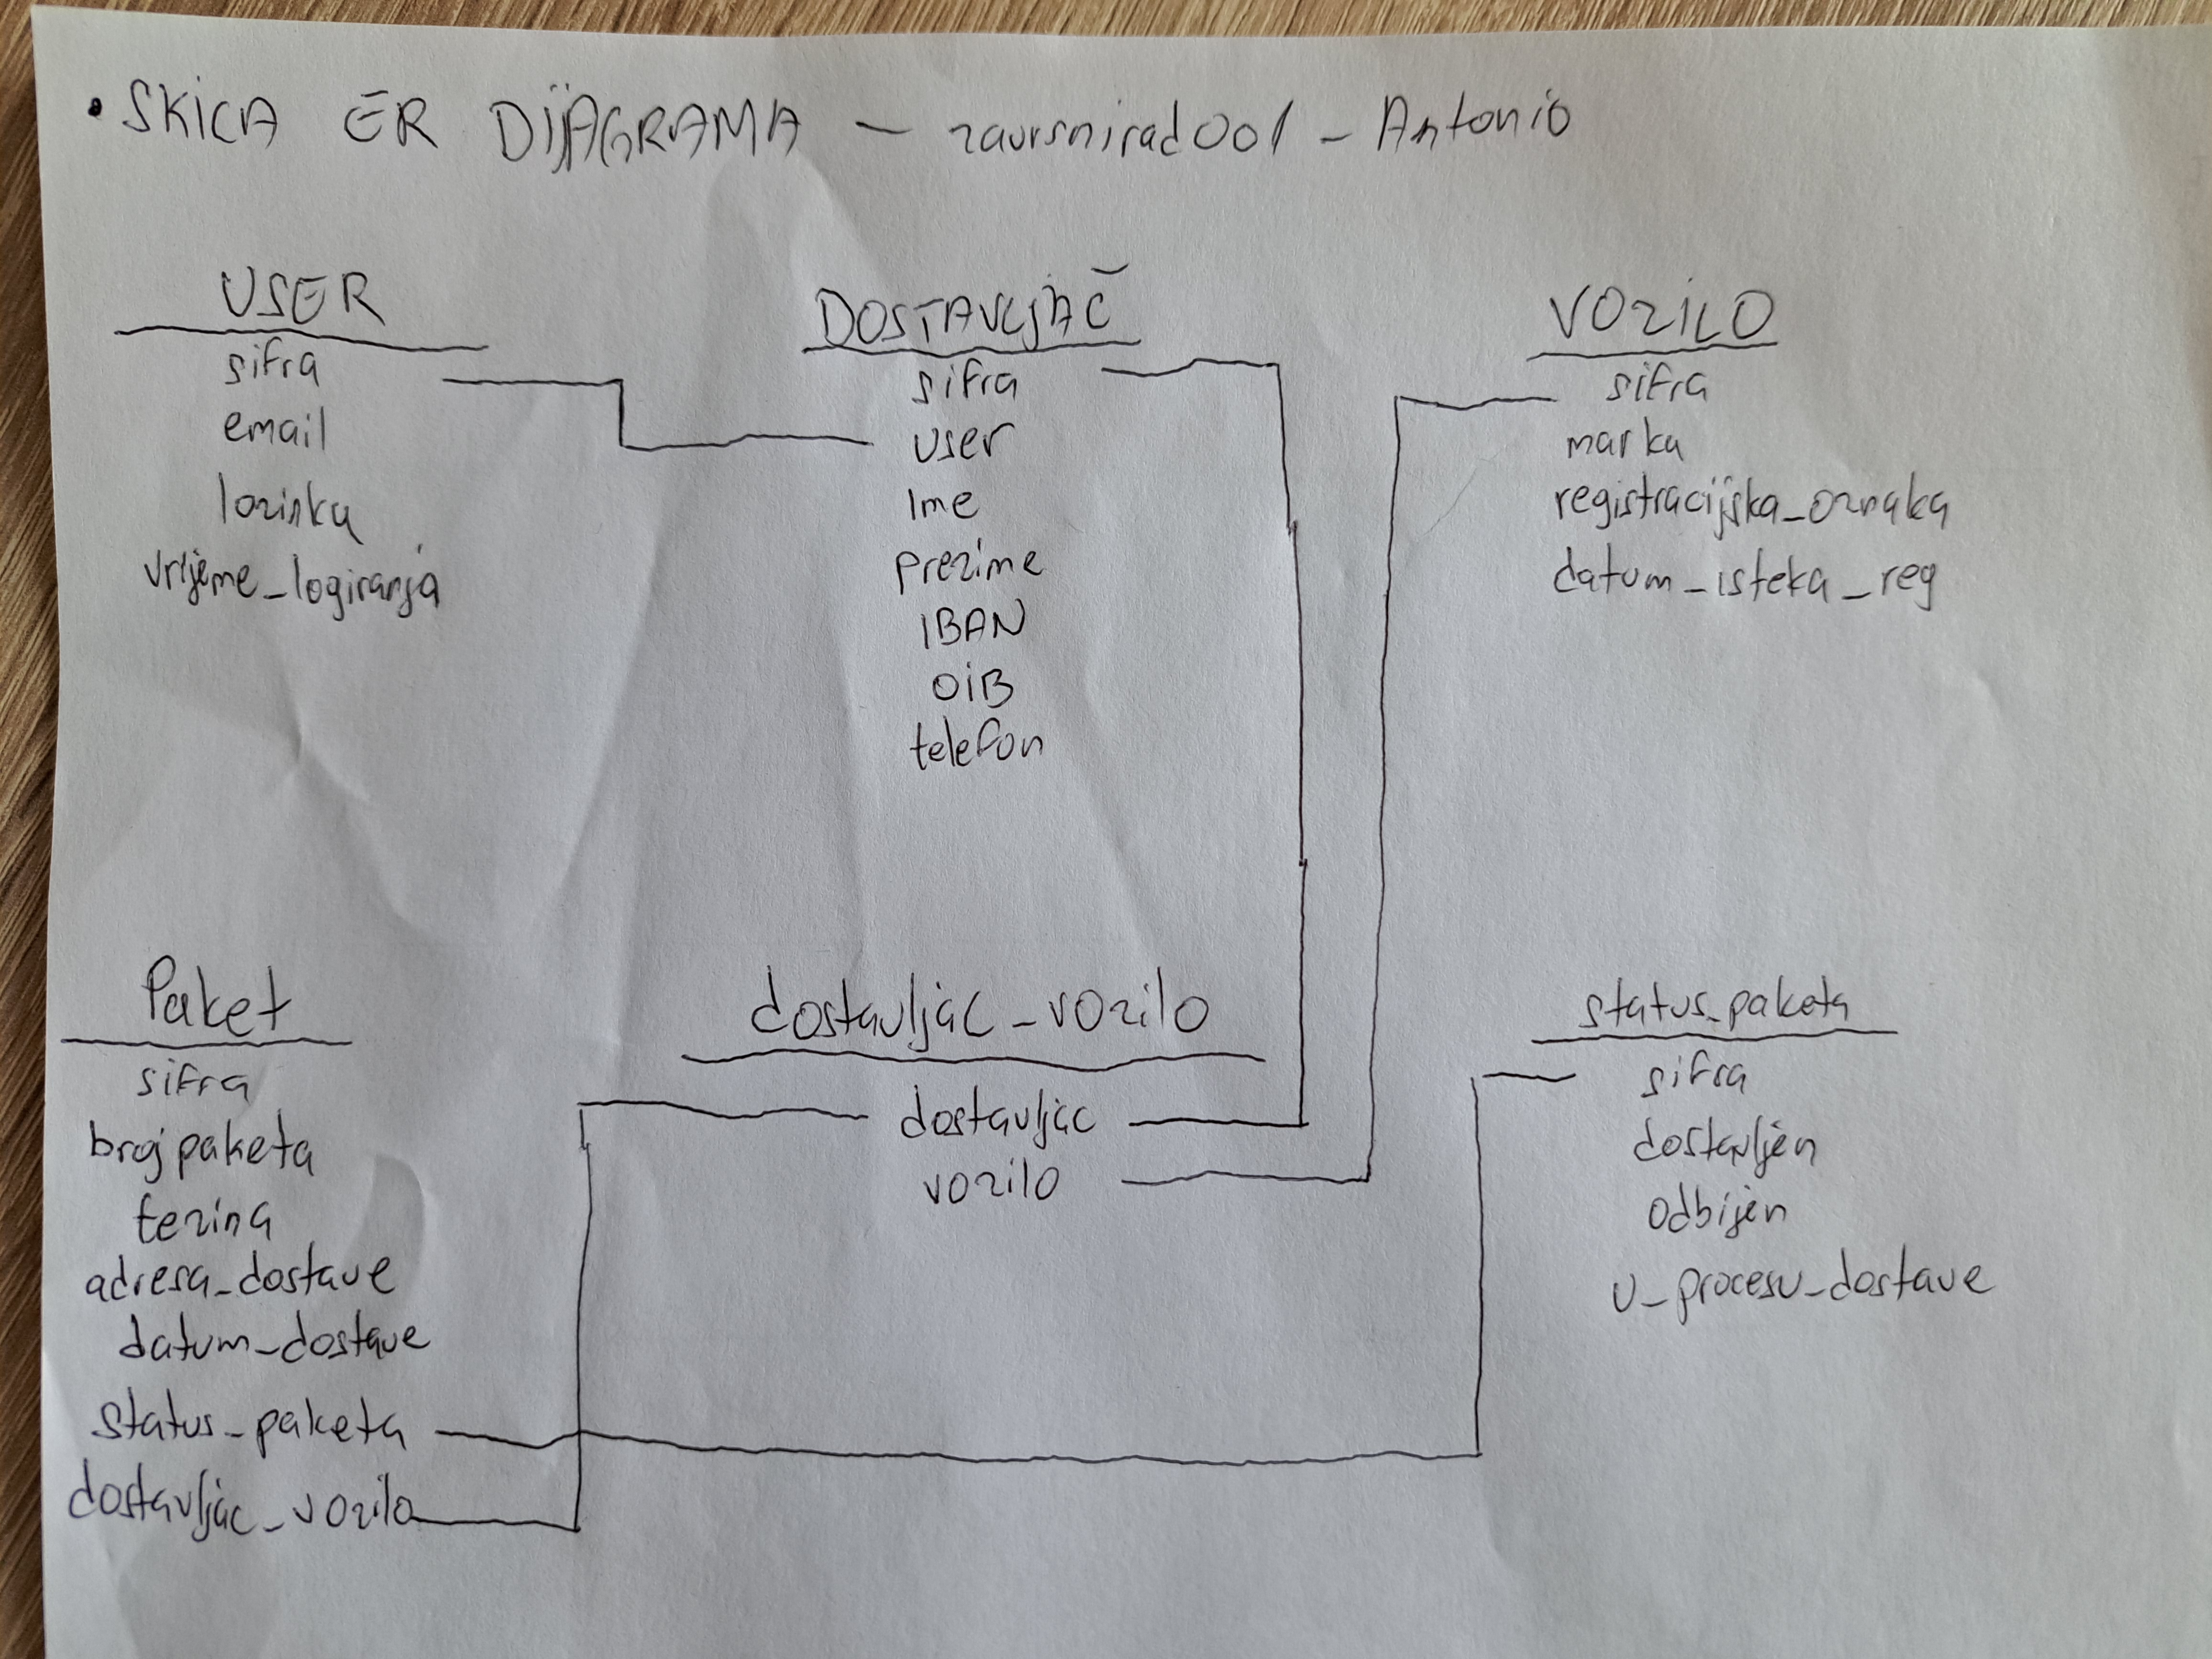 • SKICA ER DIJAGRAMA - zavrsnirad001 - Antonio
USER
sifra
email
lozinka
vrijeme_logiranja
DOSTAVLJAČ
sifra
user
Ime
prezime
IBAN
OIB
telefon
VOZILO
sifra
marka
registracijska_oznaka
datum_isteka_reg
Paket
sifra
brojpaketa
tezina
adresa_dostave
datum_dostave
status_paketa
dostavljac_vozilo
dostavljac_vozilo
dostavljac
vozilo
status_paketa
sifra
dostavljen
odbijen
u_procesu_dostave